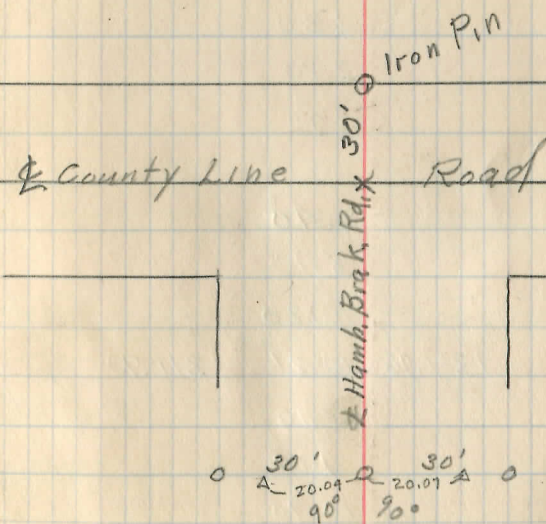 Iron Pin
30'
℄ County Line Road
℄ Hamb. Brak. Rd.
30' 30'
20.09 20.07
90° 90°